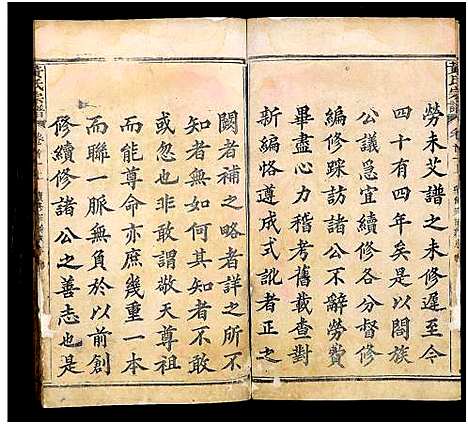 黃氏宗譜
勞未艾譜之未修遲至今
四十有四年矣是以閤族
公議爲宜續修各分督修
編修踩訪諸公不辭勞費
畢盡心力稽考舊載查對
新編遵成式訛者正之
闕者補之略者詳之所不
知者無如何其知者不敢
或忽也非敢謂敬天尊祖
而能尊命亦庶幾重一本
而聯一脈無負於以前創
修續修諸公之善志也是
黃氏宗譜